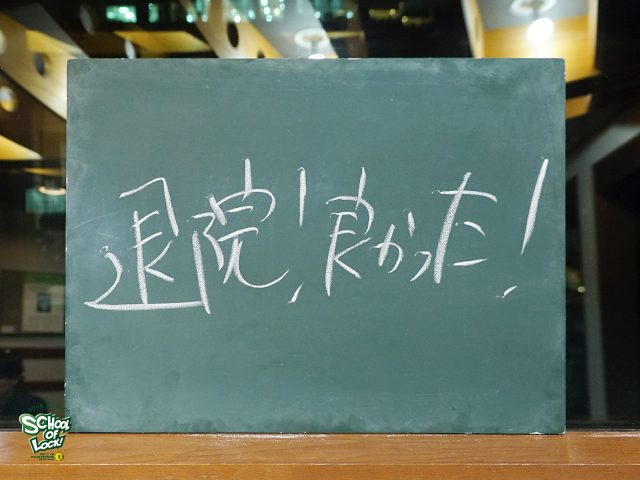 退院!良かった!
SCHOOL
OF
LOCK!